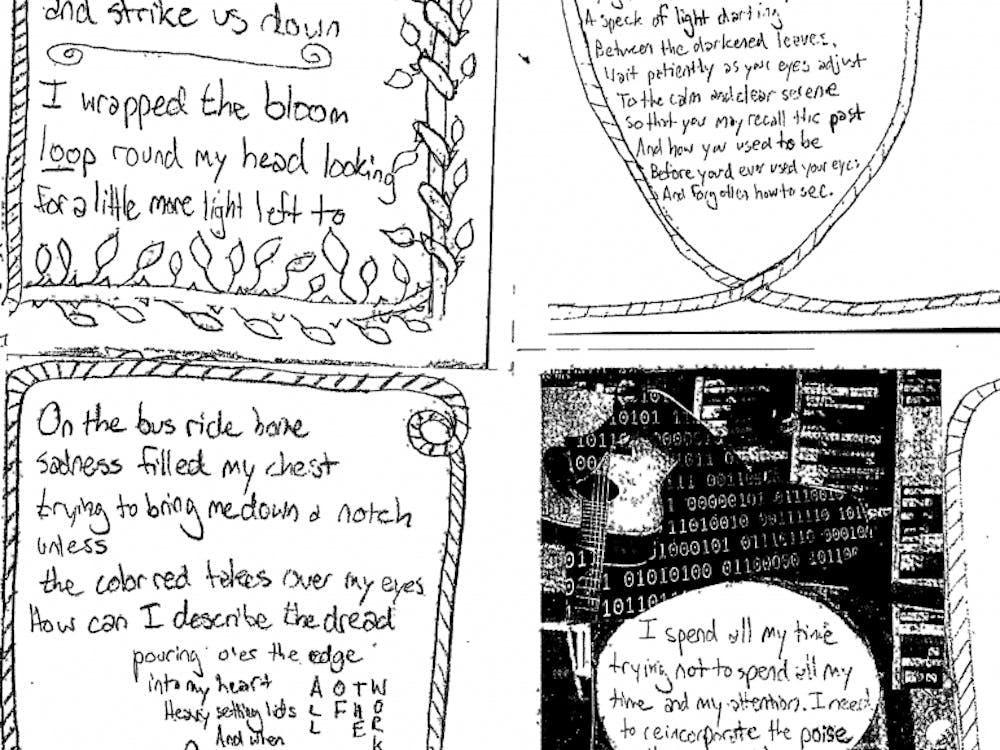 and strike us down
I wrapped the bloom
loop round my head looking
for a little more light left to
A speck of light darting
Between the darkened leaves.
Wait patiently as your eyes adjust
To the calm and clear serene
so that you may recall the past
And how you used to be
Before you'd ever used your eyes
And forgotten how to see.
On the bus ride home
sadness filled my chest
trying to bring me down a notch
unless
the color red takes over my eyes
How can I describe the dread
pouring o'er the edge
into my heart
Heavy setting lids
And when
ALL
OF
THE
WORK
10101 11
00000101
11010010
01010100
I spend all my time
trying not to spend all my
time and my attention. I need
to reincorporate the poise